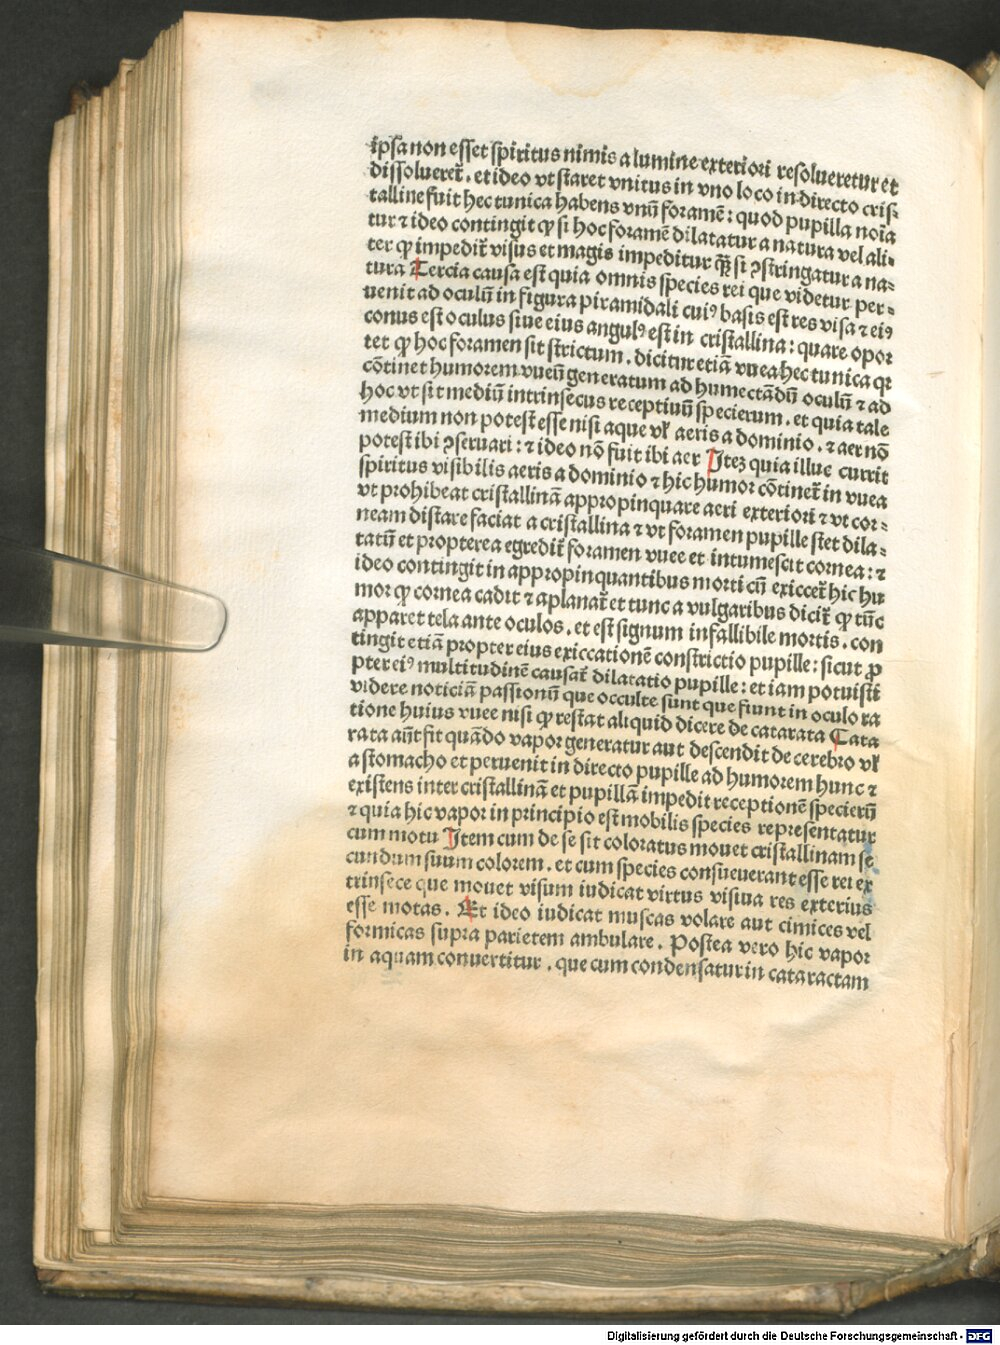 ipſa non eſſet ſpiritus nimis a lumine exteriori reſolueretur et
diſſoluereť. et ideo vt ſtaret vnitus in vno loco in directo criſ-
talline fuit hec tunica habens vnū foramē: quod pupilla noīa
tur ⁊ ideo contingit ꝙ ſi hoc foramē dilatatur a natura vel ali-
ter ꝙ impediť viſus et magis impeditur q̄ꝫ ſi ꝯſtringatur a na-
tura Tercia cauſa eſt quia omnis ſpecies rei que videtur per-
uenit ad oculū in figura piramidali cuiꝰ baſis eſt res viſa ⁊ eiꝰ
conus eſt oculus ſiue eius angulꝰ eſt in criſtallina: quare opor
tet ꝙ hoc foramen ſit ſtrictum. dicitur etiā vuea hec tunica qꝛ
cōtinet humorem vueū generatum ad humectādū oculū ⁊ ad
hoc vt ſit mediū intrinſecus receptiuū ſpecierum. et quia tale
medium non poteſt eſſe niſi aque vĺ aeris a dominio. ⁊ aer nō
poteſt ibi ꝯſeruari: ⁊ ideo nō fuit ibi aer Iteꝫ quia illuc currit
ſpiritus viſibilis aeris a dominio ⁊ hic humor cōtineť in vuea
vt prohibeat criſtallinā appropinquare aeri exteriori ⁊ vt cor-
neam diſtare faciat a criſtallina ⁊ vt foramen pupille ſtet dila-
tatū et propterea egrediť foramen vuee et intumeſcit cornea: ⁊
ideo contingit in appropinquantibus morti cū exicceť hic hu
mor ꝙ cornea cadit ⁊ aplanať et tunc a vulgaribus diciť ꝙ tūc
apparet tela ante oculos. et eſt ſignum infallibile mortis. con
tingit etiā propter eius exiccationē conſtrictio pupille: ſicut ꝓ
pter eiꝰ multitudinē cauſať dilatatio pupille: et iam potuiſti
videre noticiā paſſionū que occulte ſunt que fiunt in oculo ra
tione huius vuee niſi ꝙ reſtat aliquid dicere de catarata Cata
rata aūt fit quādo vapor generatur aut deſcendit de cerebro vĺ
a ſtomacho et peruenit in directo pupille ad humorem hunc ⁊
exiſtens inter criſtallinā et pupillā impedit receptionē ſpecierū
⁊ quia hic vapor in principio eſt mobilis ſpecies repreſentatur
cum motu Item cum de ſe ſit coloratus mouet criſtallinam ſe
cundum ſuum colorem. et cum ſpecies conſueuerant eſſe rei ex
trinſece que mouet viſum iudicat virtus viſiua res exterius
eſſe motas. Et ideo iudicat muſcas volare aut cimices vel
formicas ſupra parietem ambulare. Poſtea vero hic vapor
in aquam conuertitur. que cum condenſatur in cataractam
Digitalisierung gefördert durch die Deutsche Forschungsgemeinschaft - DFG